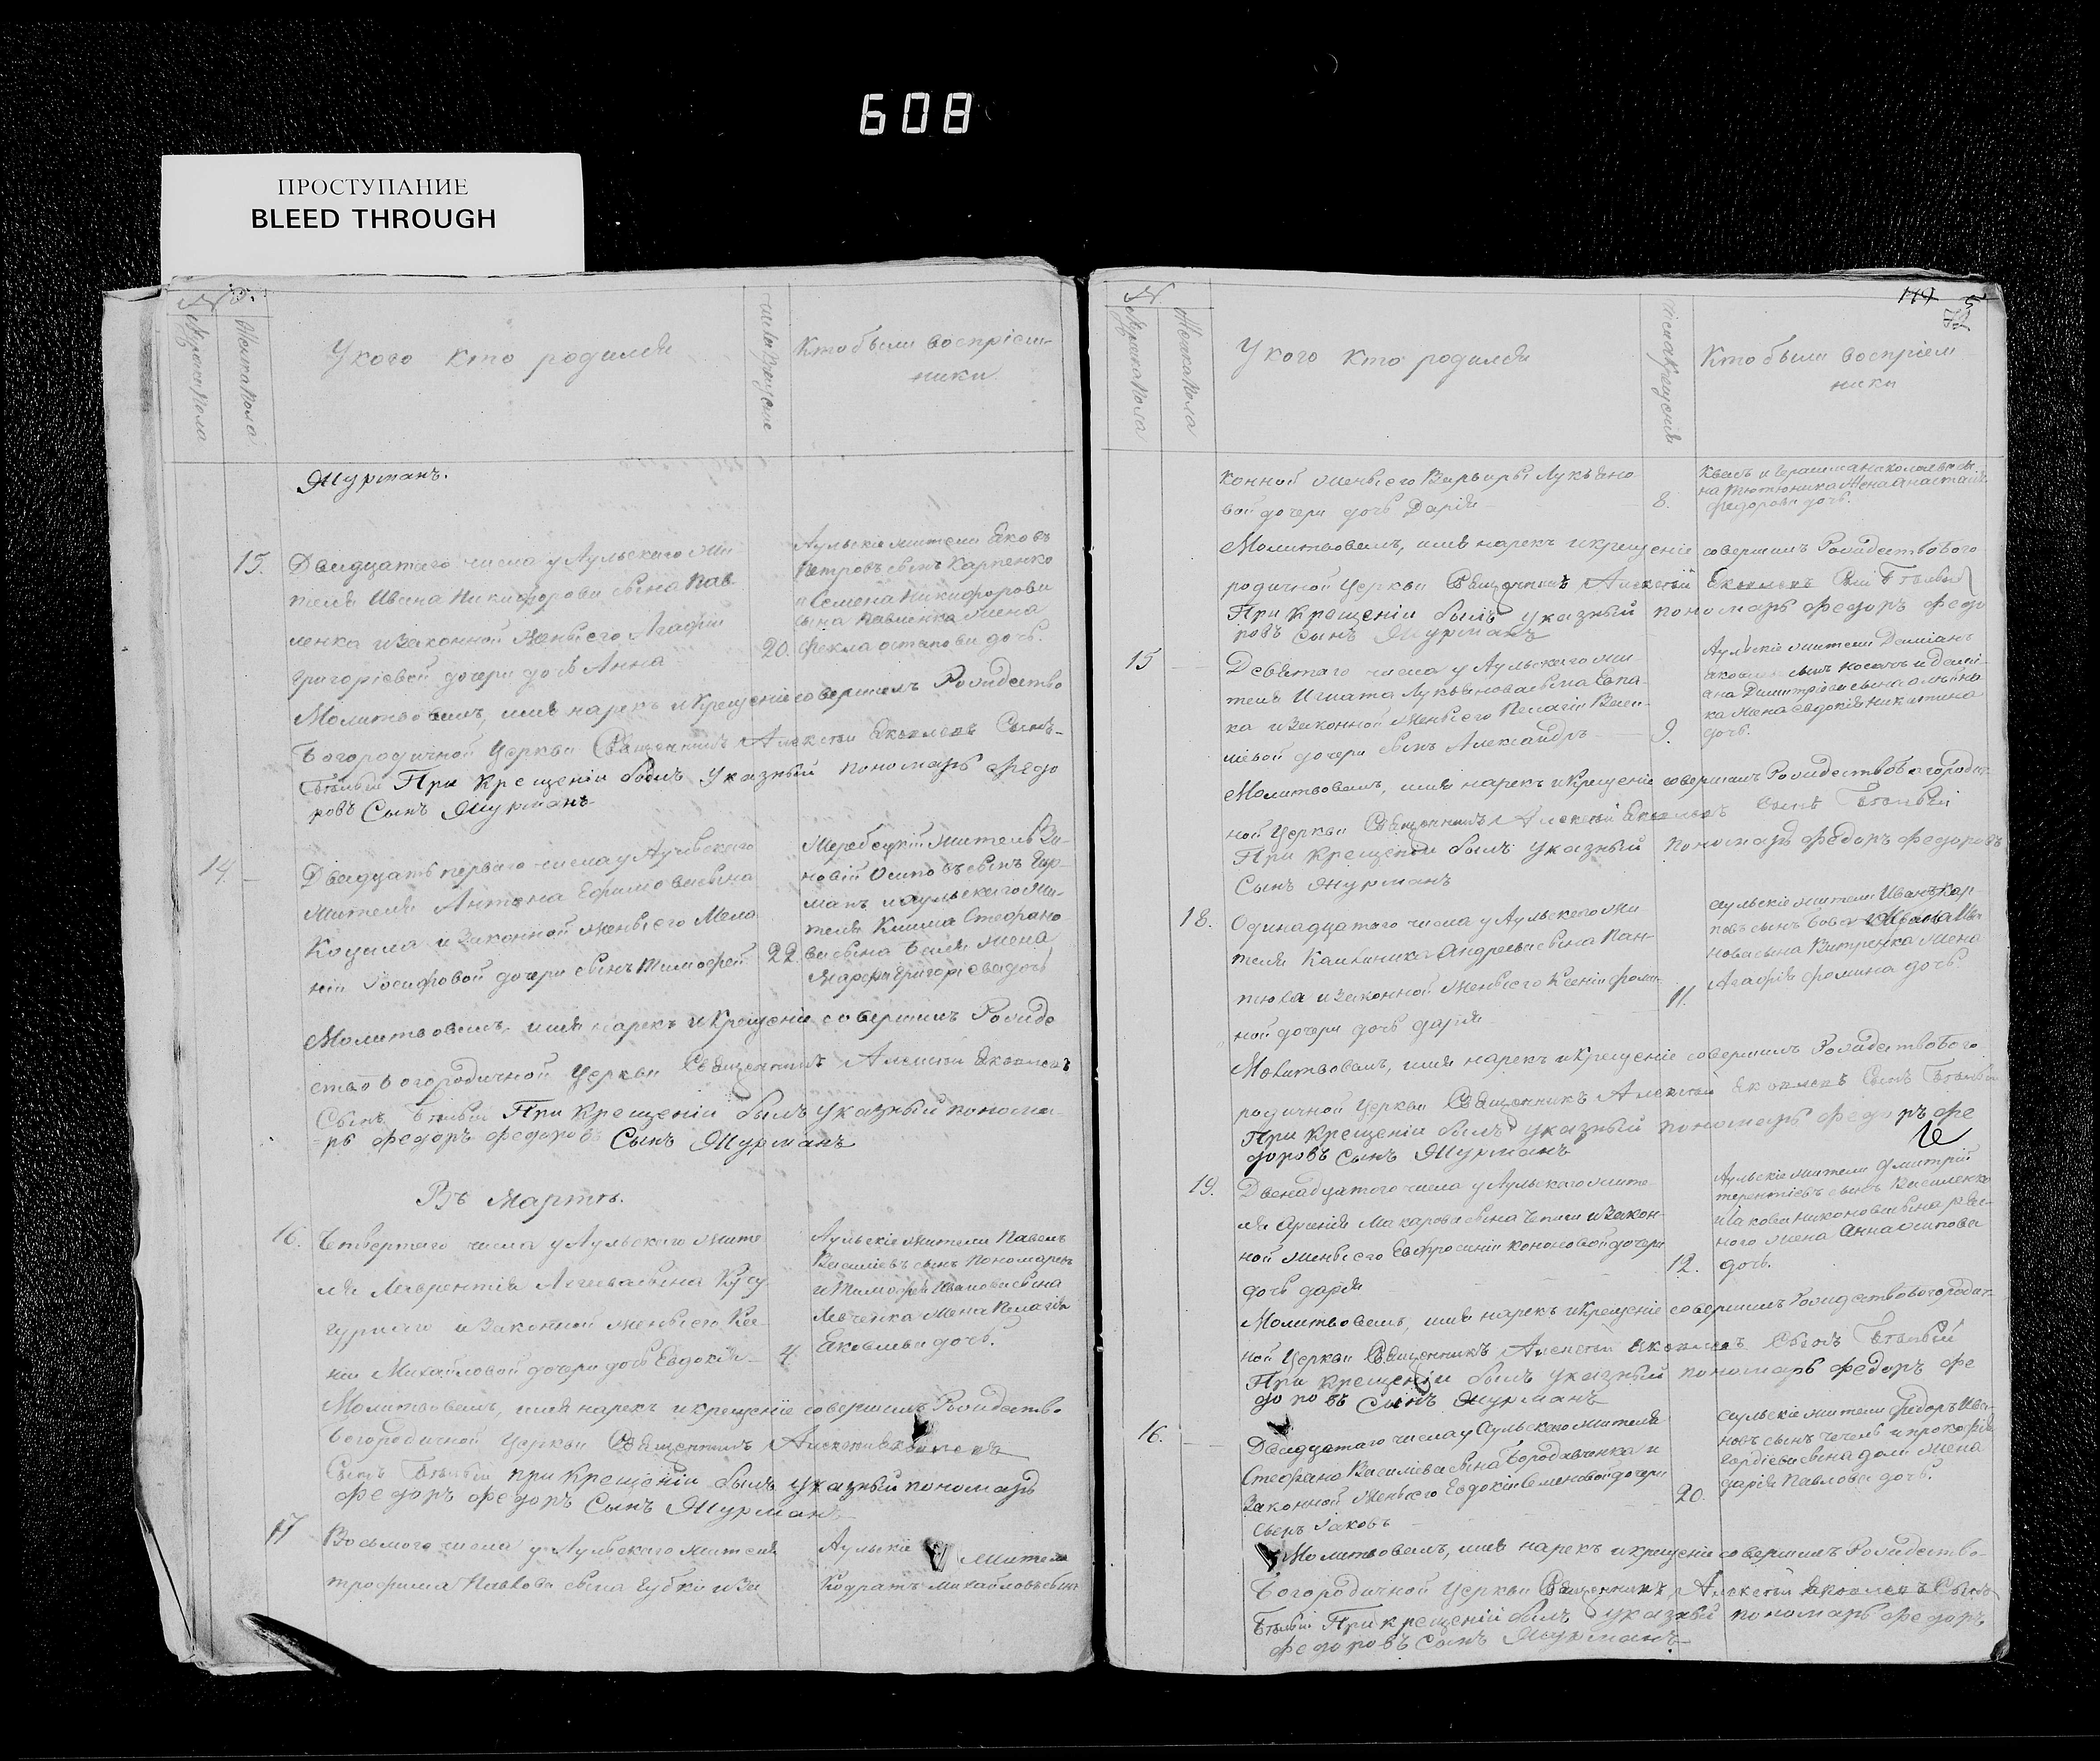 608
ПРОСТУПАНИЕ
BLEED THROUGH
№
Мужска пола
Женска пола
У кого кто родился
числа крещение
Кто были восприем-
ники
Журманъ.
15.
Двадцатаго числа у Аульскаго жи
теля Ивана Никифорова сына Пав
ленка и законной жены его Агафіи
Григоріевой дочери дочь Анна
20.
Аульскіе жители Яковъ
Петровъ сынъ Карпенко
и Семена Никифорова
сына Павленка жена
Фекла Остапова дочь.
Молитвовалъ, имя нарекъ и крещеніе совершилъ Рождество
Богородичной Церкви Священникъ Алексѣй Яковлевъ Сынъ
Бѣлый При крещеніи былъ указный пономарь Федо
ровъ Сынъ Журманъ
14
Двадцать перваго числа у Аульскаго
жителя Антона Ефимова сына
Коцила и законной жены его Мела
ніи Іосифовой дочери сынъ Тимофей
22
житель Зи-
новій Осиповъ сынъ
и аульскаго жи-
теля Клима Стефано
ва сына жена
Марфа Григоріева дочь
Молитвовалъ, имя нарекъ и крещеніе совершилъ Рожде
ство Богородичной Церкви Священникъ Алексѣй Яковлевъ
Сынъ Бѣлый При крещеніи былъ указный понома-
рь Федоръ Федоровъ Сынъ Журманъ
Въ Мартѣ.
16.
Четвертаго числа у Аульскаго жите
ля Лаврентія сына
и законной жены его
ніи Михайловой дочери дочь Евдокія
4.
Аульскіе жители Павелъ
Василіевъ сынъ Пономарь
и Тимофея Иванова сына
Левченка жена Пелагія
Яковлева дочь.
Молитвовалъ, имя нарекъ и крещеніе совершилъ Рождество
Богородичной Церкви Священникъ Алексѣй Яковлевъ
Сынъ Бѣлый При крещеніи былъ указный пономарь
Федоръ Федоръ Сынъ Журманъ
17
Восьмого числа у Аульскаго жителя
Трофима Павлова сына Губки и за
Аульскіе жители
Кодратъ Михайловъ сынъ
№
Мужска пола
Женска пола
У кого кто родился
числа крещенія
Кто были восприем
ники
119
конной жены его Варвары Лукъяно
вой дочери дочь Дарія
8.
на Тютюника жена Анастасія
Федорова дочь.
Молитвовалъ, имя нарекъ и крещеніе совершилъ Рождество Бого
родичной Церкви Священникъ Алексѣй Яковлевъ Сынъ Бѣлый
При крещеніи былъ указный пономарь Федоръ Федо
ровъ Сынъ Журманъ
15
Девятаго числа у Аульскаго жи-
теля Игната Лукьянова сына
ка и законной жены его Пелагіи Васи-
ліевой дочери сынъ Александръ
9.
Аульскіе жители Даміанъ
Яковлевъ сынъ Носачъ и Дамі-
ана Димитріева сына
ка жена Евдокія Никитина
дочь.
Молитвовалъ, имя нарекъ и крещеніе совершилъ Рождество Богородич
ной Церкви Священникъ Алексѣй Яковлевъ Сынъ Бѣлый
При крещеніи былъ указный пономарь Федоръ Федоровъ
Сынъ Журманъ
18.
Одинадцатого числа у Аульскаго жи
теля Калиника Андреева сына Пан-
и законной жены его Ксеніи Фоми-
ной дочери дочь Дарія
11.
Аульскіе жители Иванъ Кар-
повъ сынъ и Ивана Ива
нова сына жена
Агафія Фомина дочь.
Молитвовалъ, имя нарекъ и крещеніе совершилъ Рождество Бого
родичной Церкви Священникъ Алексѣй Яковлевъ Сынъ Бѣлый
При крещеніи былъ указный пономарь Федоръ Фе
доровъ Сынъ Журманъ
19.
Двенадцатого числа у Аульскаго жите-
ля Арсенія Макарова сына и закон-
ной жены его Евфросиніи Кононовой дочери
дочь Дарія
12.
Аульскіе жители Дмитрій
Терентіевъ сынъ Василенко
и Іакова Никонова сына
жена Анна Осипова
дочь.
Молитвовалъ, имя нарекъ и крещеніе совершилъ Рождество Богородич-
ной Церкви Священникъ Алексѣй Яковлевъ Сынъ Бѣлый
При крещеніи былъ указный пономарь Федоръ Фе
доровъ Сынъ Журманъ
16.
Двадцатаго числа у Аульскаго жителя
Стефана Василіева сына Бородавченка и
законной жены его Евдокіи Семеновой дочери
сынъ Іаковъ
20.
Аульскіе жители Федоръ Ива-
новъ сынъ и Прокофія
Гордіева сына жена
Дарія Павлова дочь.
Молитвовалъ, имя нарекъ и крещеніе совершилъ Рождество-
Богородичной Церкви Священникъ Алексѣй Яковлевъ Сынъ
Бѣлый При крещеніи былъ указный пономарь Федоръ
Федоровъ Сынъ Журманъ